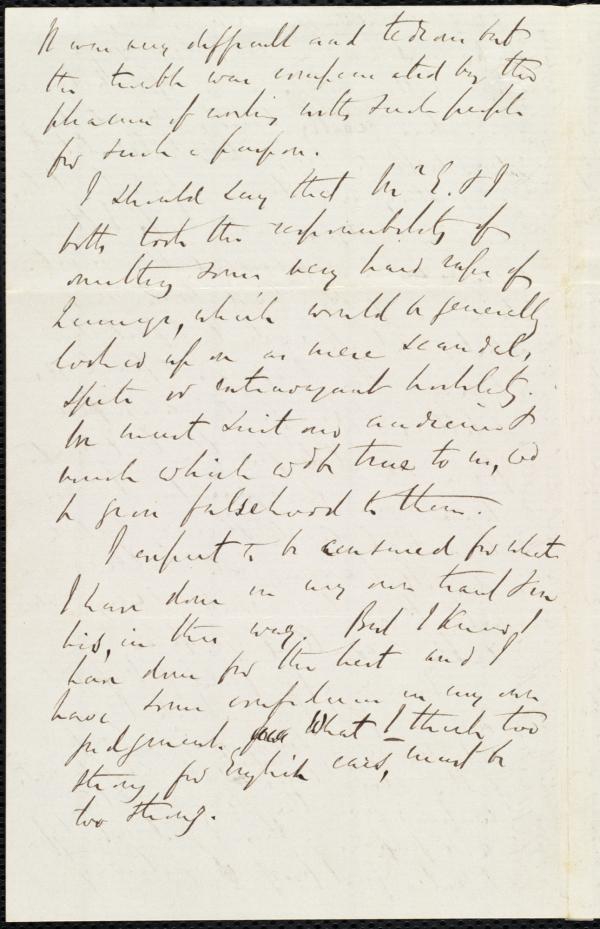 It was very difficult and tedious but
the trouble was compensated by the
pleasure of working with such people
for such a purpose.
I should say that Mr E. & I
both took the responsibility of
omitting some very hard
which would be generally
looked upon as mere scandal,
spite or extravagant hostility.
We must suit our audience &
much which wd be true to us, wd
be gross falsehood to them.
I expect to be censured for what
I have done in my own tract
in this way. But I know I
have done for the best and I
have some confidence in my own
judgment. What I think too
strong for English ears, must be
too strong.